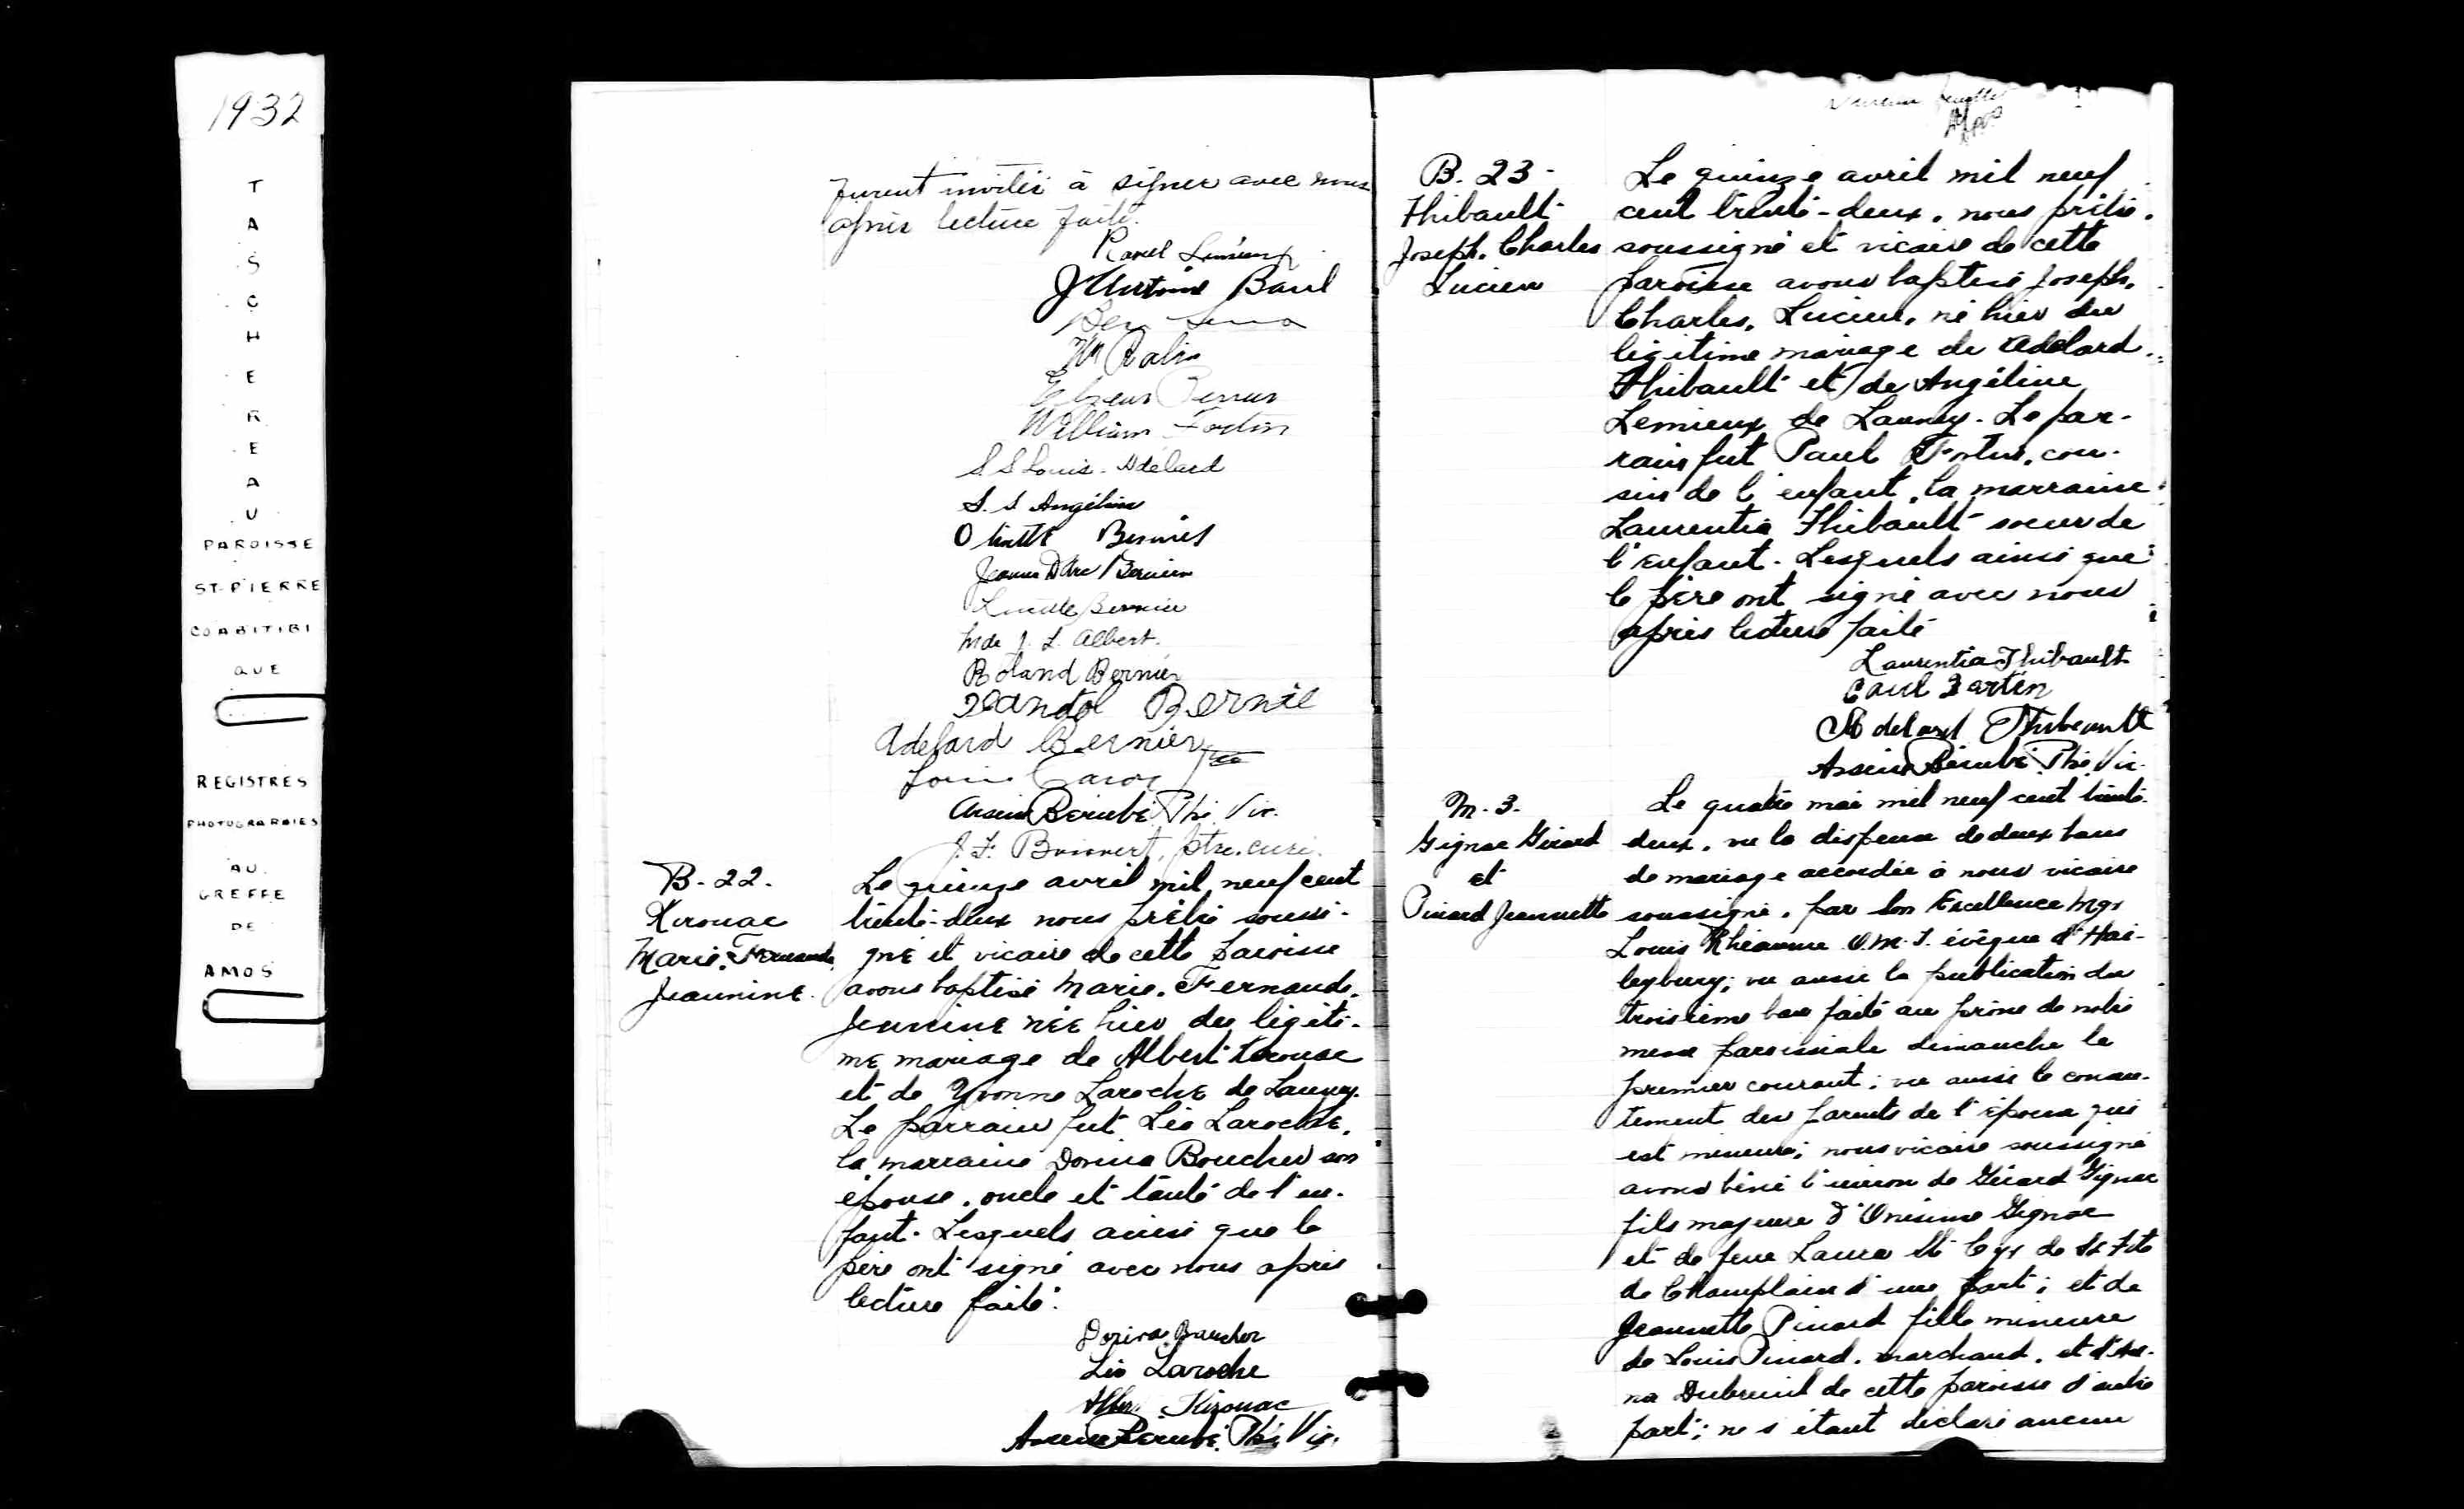 1932
TASCHEREAU
PAROISSE
ST-PIERRE
CO ABITIBI
QUE
REGISTRES
PHOTOGRAPHIES
AU
GREFFE
DE
AMOS
furent invités à signer avec nous
après lecture faite.
J Antoine
William Fortin
S. S Louis-Adélard
S. S Angéline
Jeanne D'Arc Bernier
Lucille Bernier
Mde J. L. Albert.
Roland Bernier
Adelard Bernier
Louis Caron
Arsène Bérubé Ptre Vic.
J. F. Boisvert, ptre. curé.
B-22.
Kirouac
Marie. Fernande.
Jeannine.
Le quinze avril mil neuf cent
trente-deux nous prêtre soussi-
gné et vicaire de cette paroisse
avons baptisé Marie. Fernande.
Jeannine née hier du légiti-
me mariage de Albert Kirouac
et de Yvonne Laroche de Launay.
Le parrain fut Léo Laroche,
la marraine Dorina Boucher son
épouse, oncle et tante de l'en-
fant. Lesquels ainsi que le
père ont signé avec nous après
lecture faite.
Dorina Boucher
Léo Laroche
Kirouac
Arsène Bérubé Ptre Vic.
B. 23-
Thibault
Joseph. Charles
Lucien
Le quinze avril mil neuf
cent trente-deux, nous prêtre.
soussigné et vicaire de cette
paroisse avons baptisé Joseph.
Charles. Lucien. né hier du
légitime mariage de Adélard
Thibault et de Angéline
Lemieux de Launay. Le par-
rain fut Paul Fortin, cou-
sin de l'enfant, la marraine
Laurentia Thibault soeur de
l'enfant. Lesquels ainsi que
le père ont signé avec nous
après lecture faite
Laurentia Thibault
Paul Fortin
Adelard Thibeault
Arsène Bérubé Ptre Vic.
M-3.
Gignac Gérard
et
Pinard Jeannette
Le quatre mai mil neuf cent trente-
deux, vu la dispense de deux bans
de mariage accordée à nous vicaire
soussigné, par Son Excellence Mgr
Louis Rhéaume O.M.I. évêque d'Hai-
leybury; vu aussi la publication du
troisième ban faite au prône de notre
messe paroissiale dimanche le
premier courant; vu aussi le consen-
tement des parents de l'épouse qui
est mineure; nous vicaire soussigné
avons béni l'union de Gérard Gignac
fils majeure d'Onésime Gignac
et de feue Laura St Cyr de St Tite
de Champlain d'une part; et de
Jeannette Pinard fille mineure
de Louis Pinard, marchand, et d'An-
na Dubreuil de cette paroisse d'autre
part; ne s'étant déclaré aucun